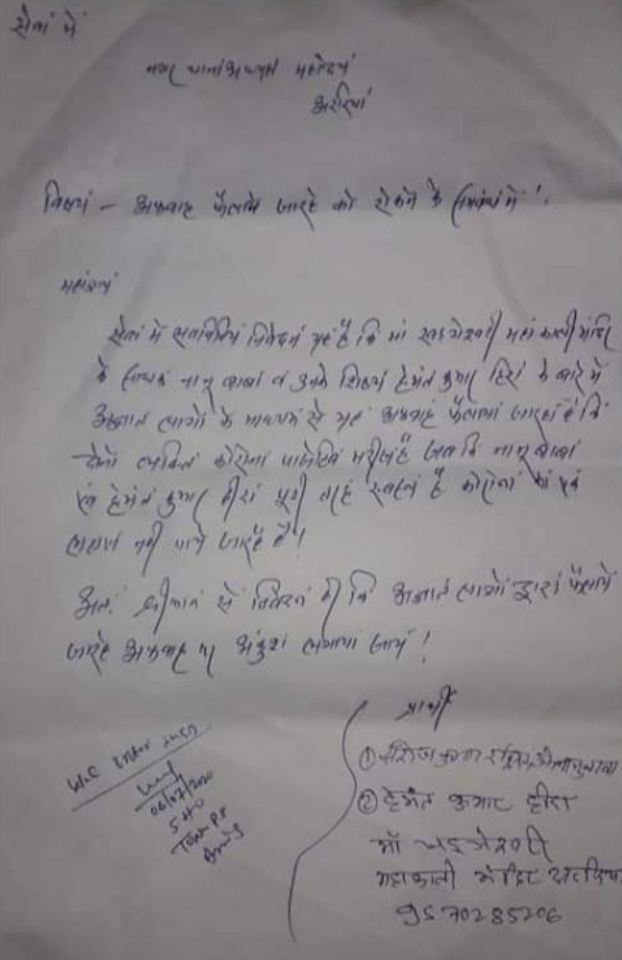 सेवां में
नगर थानांअध्यक्ष महोदयं
अररियां
विषयं - अफवाह फैलाये जारहे को रोकने के सम्बंधं में।
महाशयं
सेवां में सविनियं निवेदनं यहं है कि मां खडगेश्वरी महां काली मंदिर
के साधक नानू बाबां वं उनके शिष्यं हेमंत कुमार हिरां के बारे में
अज्ञात लोगों के माध्यम से यहं अफवाहं फैलायां जारहां है कि
दोनों व्यक्ति कोरोनां पाजेटिव मरीज है जब कि नानू बाबां
एवं हेमंत कुमार हीरां पूरी तरहं स्वस्थं है कोरोनां कां एकं
लक्षण नही पाये जारहे है।
अतं: श्रीमान से निवेदनं है कि अज्ञात लोगों द्वारां फैलाये
जारहे अफवाह पर अंकुशं लगायां जायं!
प्रार्थी
① सरोज कुमार
② हेमंत कुमार हीरा
माँ खड्गेश्वरी
महाकाली मंदिर अररिया
9570285206
06/07/2020
SHO
Town PS